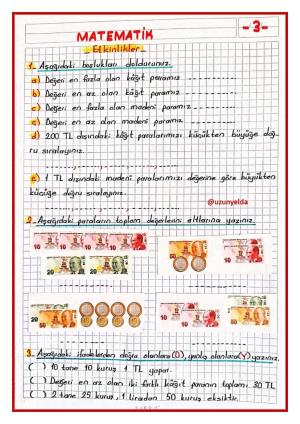 MATEMATİK
-3-
Etkinlikler
1- Aşağıdaki boşlukları doldurunuz.
a) Değeri en fazla olan kâğıt paramız
b) Değeri en az olan kâğıt paramız
c) Değeri en fazla olan madeni paramız
ç) Değeri en az olan madeni paramız
d) 200 TL dışındaki kâğıt paralarımızı küçükten büyüğe doğ-
ru sıralayınız.
e) 1 TL dışındaki madeni paralarımızı değerine göre büyükten
küçüğe doğru sıralayınız.
@uzunyelda
2- Aşağıdaki paraların toplam değerlerini altlarına yazınız.
10 10 10
20 20
50 50
10 10
50
50 20
3- Aşağıdaki ifadelerden doğru olanlara(D), yanlış olanlara(Y) yazınız.
( ) 10 tane 10 kuruş 1 TL yapar.
( ) Değeri en az olan iki farklı kâğıt paranın toplamı 30 TL
( ) 2 tane 25 kuruş, 1 liradan 50 kuruş eksiktir.